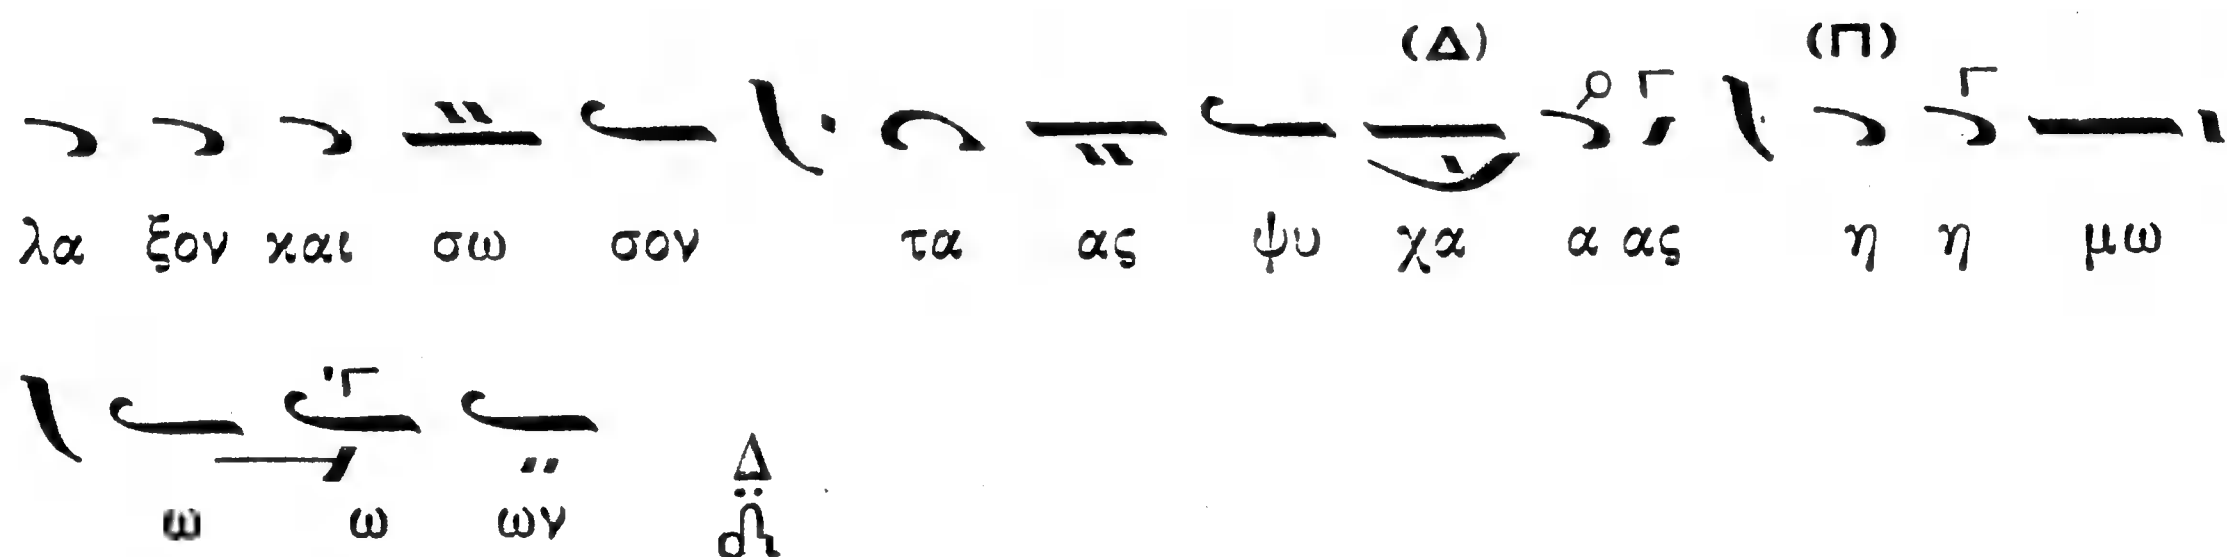 (Δ) (Π)
λα ξον και σω σον τα ας ψυ χα α ας η η μω
ω ω ων Δ